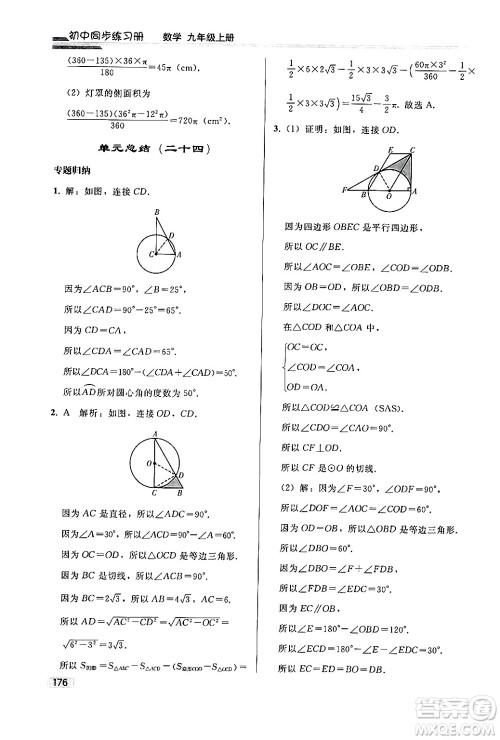 初中同步练习册 数学 九年级上册
(360-135)×36π/180=45π(cm).
(2) 灯罩的侧面积为
(360-135)×(36²π-12²π)/360=720π(cm²).
单元总结(二十四)
专题归纳
1. 解:如图,连接 CD.
B
D
C A
因为∠ACB=90°,∠B=25°,
所以∠A=90°-∠B=65°.
因为 CD=CA,
所以∠CDA=∠CAD=65°.
所以∠DCA=180°-(∠CDA+∠CAD)=50°.
所以AD所对圆心角的度数为 50°.
2. A 解析:如图,连接 OD,CD.
A
O
D
C B
因为 AC 是直径,所以∠ADC=90°.
因为∠A=30°,所以∠ACD=90°-∠A=60°.
因为 OC=OD,所以△OCD 是等边三角形.
因为 BC 是切线,所以∠ACB=90°.
因为 BC=2√3,所以 AB=4√3,AC=6.
所以 AD=√(AC²-CD²)=√(AC²-OC²)=
√(6²-3²)=3√3.
所以 S阴影=S△ABC-S△ACD-(S扇形COD-S△COD)=
1/2×6×2√3-1/2×3×3√3-(60π×3²/360-
1/2×3×3√3/2)=15√3/4-3/2π. 故选 A.
3. (1) 证明:如图,连接 OD.
E C
D
F B O A
因为四边形 OBEC 是平行四边形,
所以 OC∥BE.
所以∠AOC=∠OBE,∠COD=∠ODB.
因为 OB=OD,
所以∠OBD=∠ODB.
所以∠DOC=∠AOC.
在△COD 和△COA 中,
OC=OC,
∠COD=∠COA,
OD=OA,
所以△COD≌△COA(SAS).
所以∠CDO=∠CAO=90°.
所以 CF⊥OD.
所以 CF 是⊙O 的切线.
(2) 解:因为∠F=30°,∠ODF=90°,
所以∠DOF=∠AOC=∠COD=60°.
因为 OD=OB,
所以△OBD 是等边三角形.
所以∠DBO=60°.
因为∠DBO=∠F+∠FDB,
所以∠FDB=∠F=30°.
因为 EC∥OB,
所以∠E=180°-∠OBD=120°.
所以∠ECD=180°-∠E-∠EDC=30°.
176
答案圈